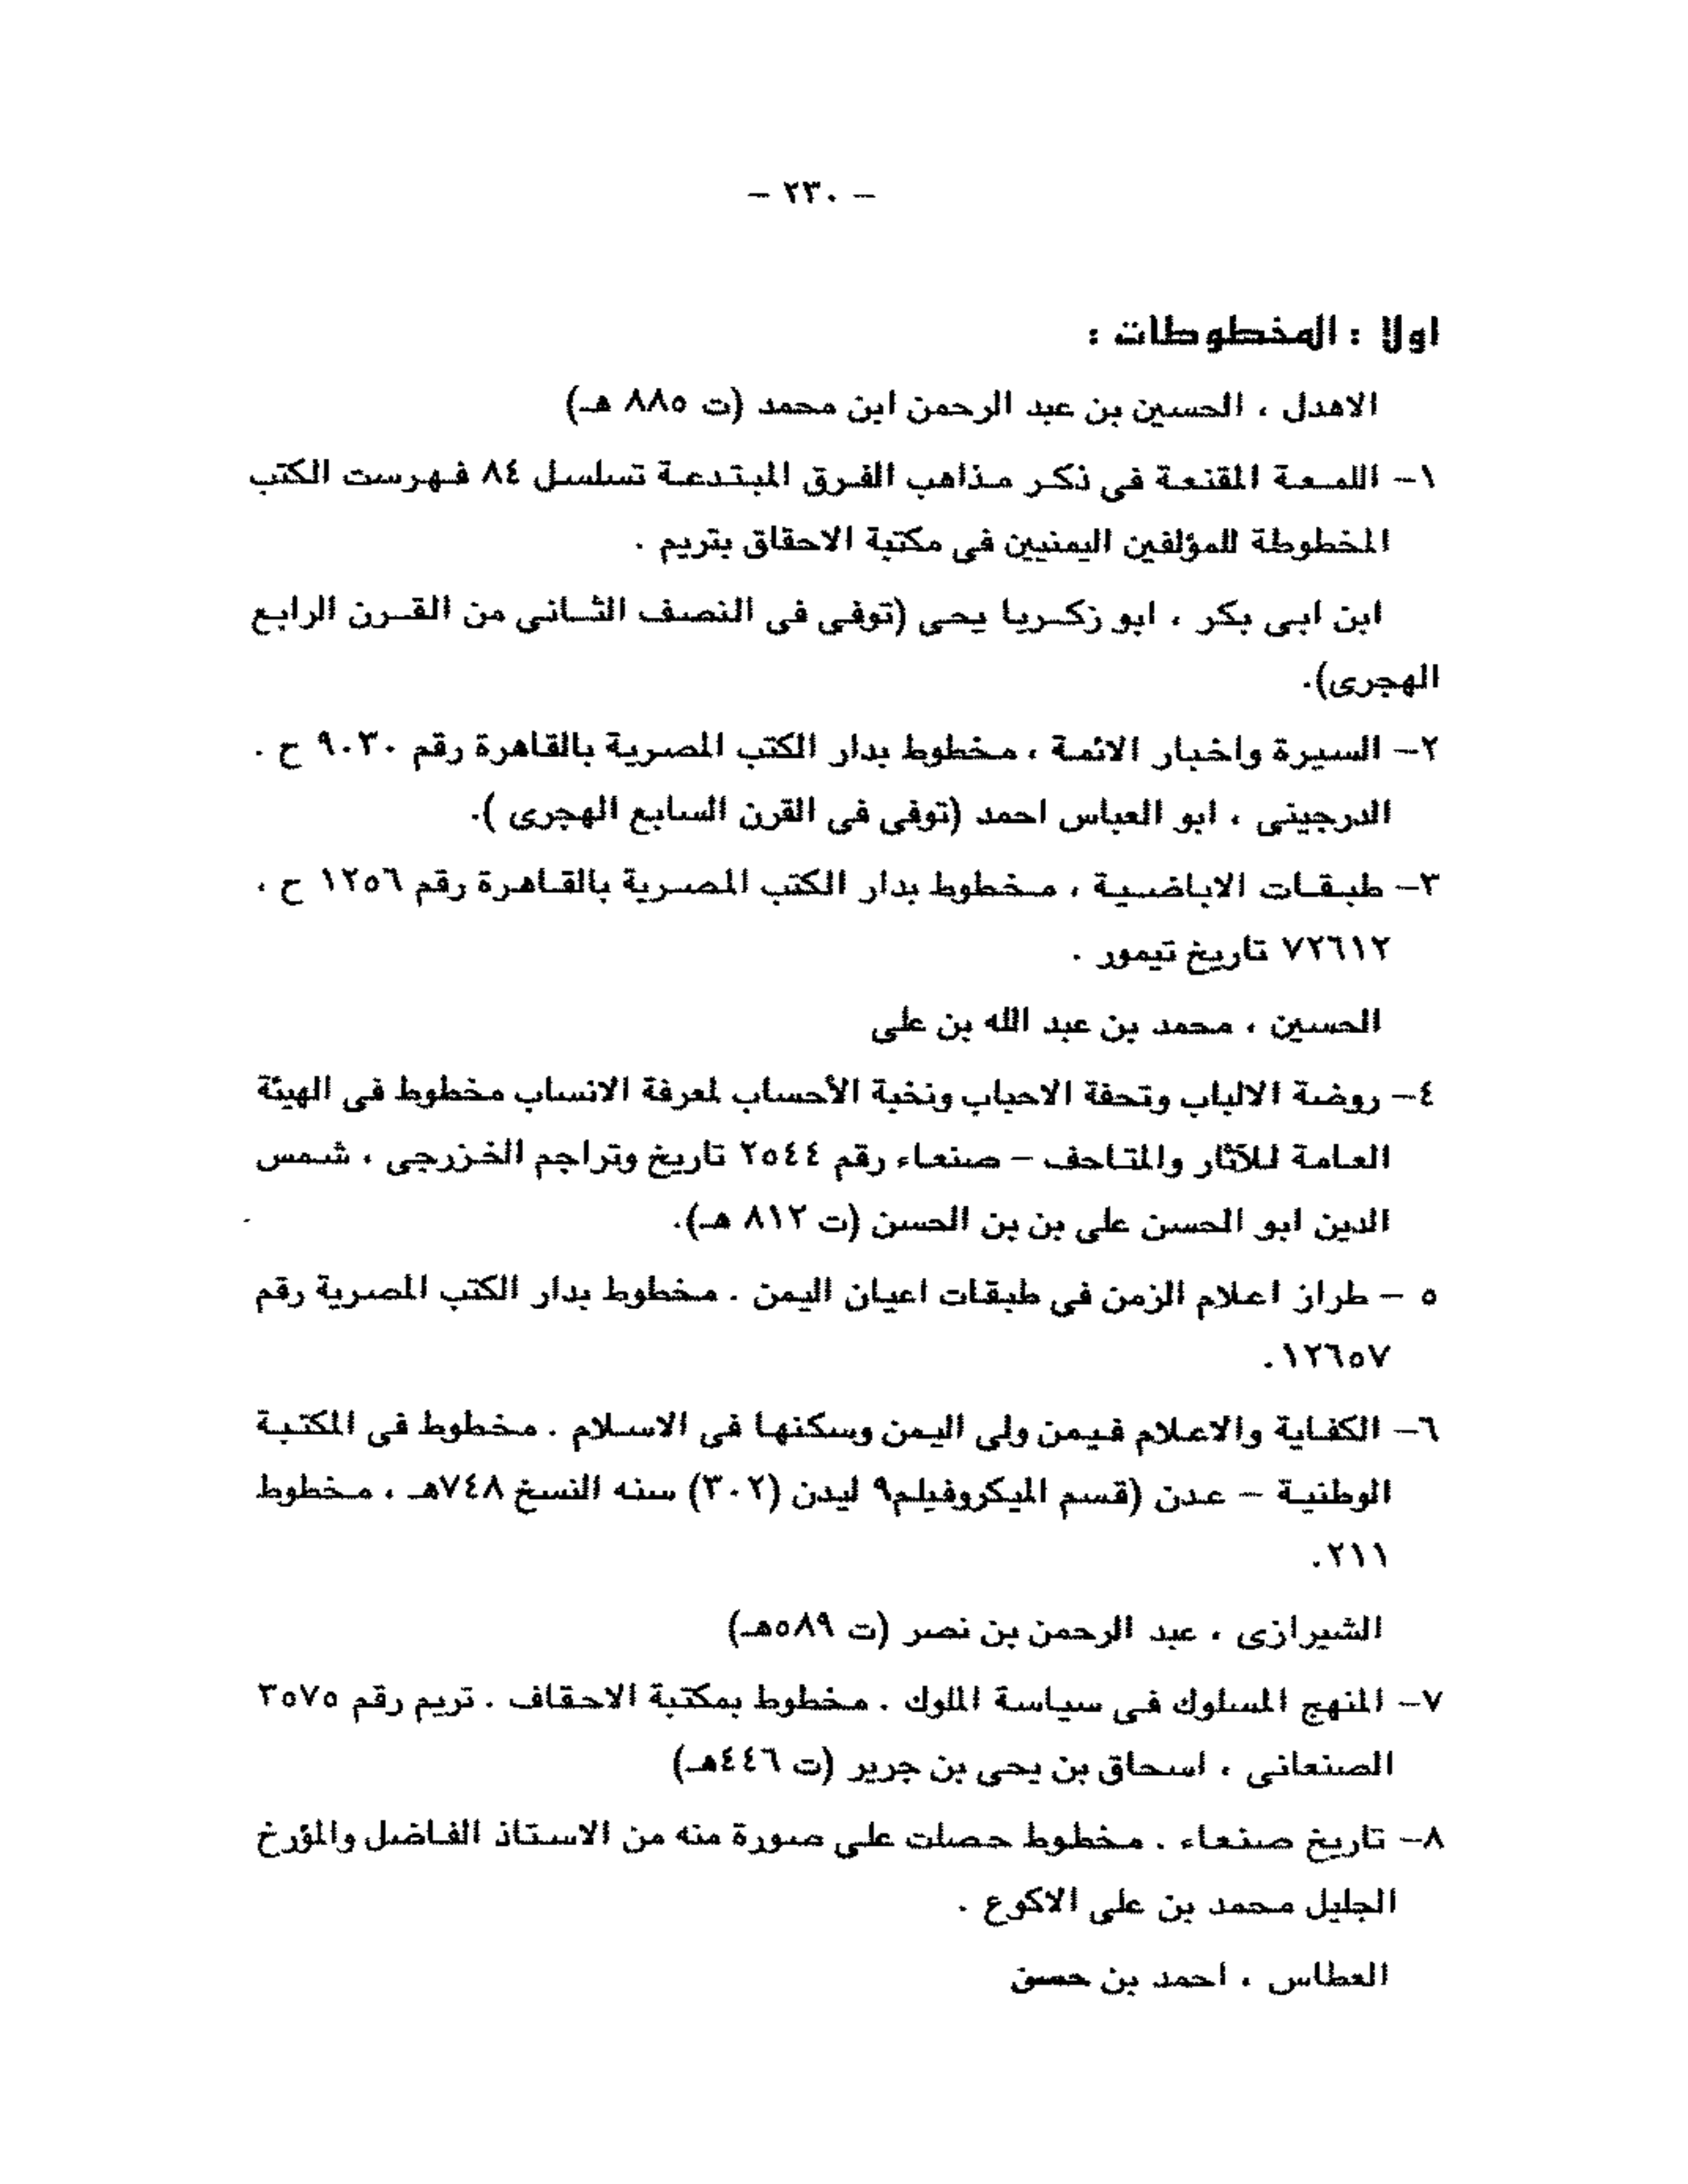 – ٢٣٠ –
اولا : المخطوطات :
الاهدل ، الحسين بن عبد الرحمن ابن محمد (ت ٨٨٥ هـ)
١– اللمعة المقنعة فى ذكر مذاهب الفرق المبتدعة تسلسل ٨٤ فهرست الكتب
المخطوطة للمؤلفين اليمنيين فى مكتبة الاحقاق بتريم .
ابن ابى بكر ، ابو زكريا يحى (توفى فى النصف الثانى من القرن الرابع
الهجرى).
٢– السيرة واخبار الائمة ، مخطوط بدار الكتب المصرية بالقاهرة رقم ٩٠٣٠ ح .
الدرجينى ، ابو العباس احمد (توفى فى القرن السابع الهجرى ).
٣– طبقات الاباضية ، مخطوط بدار الكتب المصرية بالقاهرة رقم ١٢٥٦ ح ،
٧٢٦١٢ تاريخ تيمور .
الحسين ، محمد بن عبد الله بن على
٤– روضة الالباب وتحفة الاحباب ونخبة الأحساب لمعرفة الانساب مخطوط فى الهيئة
العامة للآثار والمتاحف – صنعاء رقم ٢٥٤٤ تاريخ وتراجم الخزرجى ، شمس
الدين ابو الحسن على بن بن الحسن (ت ٨١٢ هـ).
٥ – طراز اعلام الزمن فى طبقات اعيان اليمن . مخطوط بدار الكتب المصرية رقم
١٢٦٥٧.
٦– الكفاية والاعلام فيمن ولى اليمن وسكنها فى الاسلام . مخطوط فى المكتبة
الوطنية – عدن (قسم الميكروفيلم٩ ليدن (٣٠٢) سنه النسخ ٧٤٨هـ ، مخطوط
٢١١.
الشيرازى ، عبد الرحمن بن نصر (ت ٥٨٩هـ)
٧– المنهج المسلوك فى سياسة الملوك . مخطوط بمكتبة الاحقاف . تريم رقم ٣٥٧٥
الصنعانى ، اسحاق بن يحى بن جرير (ت ٤٤٦هـ)
٨– تاريخ صنعاء . مخطوط حصلت على صورة منه من الاستاذ الفاضل والمؤرخ
الجليل محمد بن على الاكوع .
العطاس ، احمد بن حسن